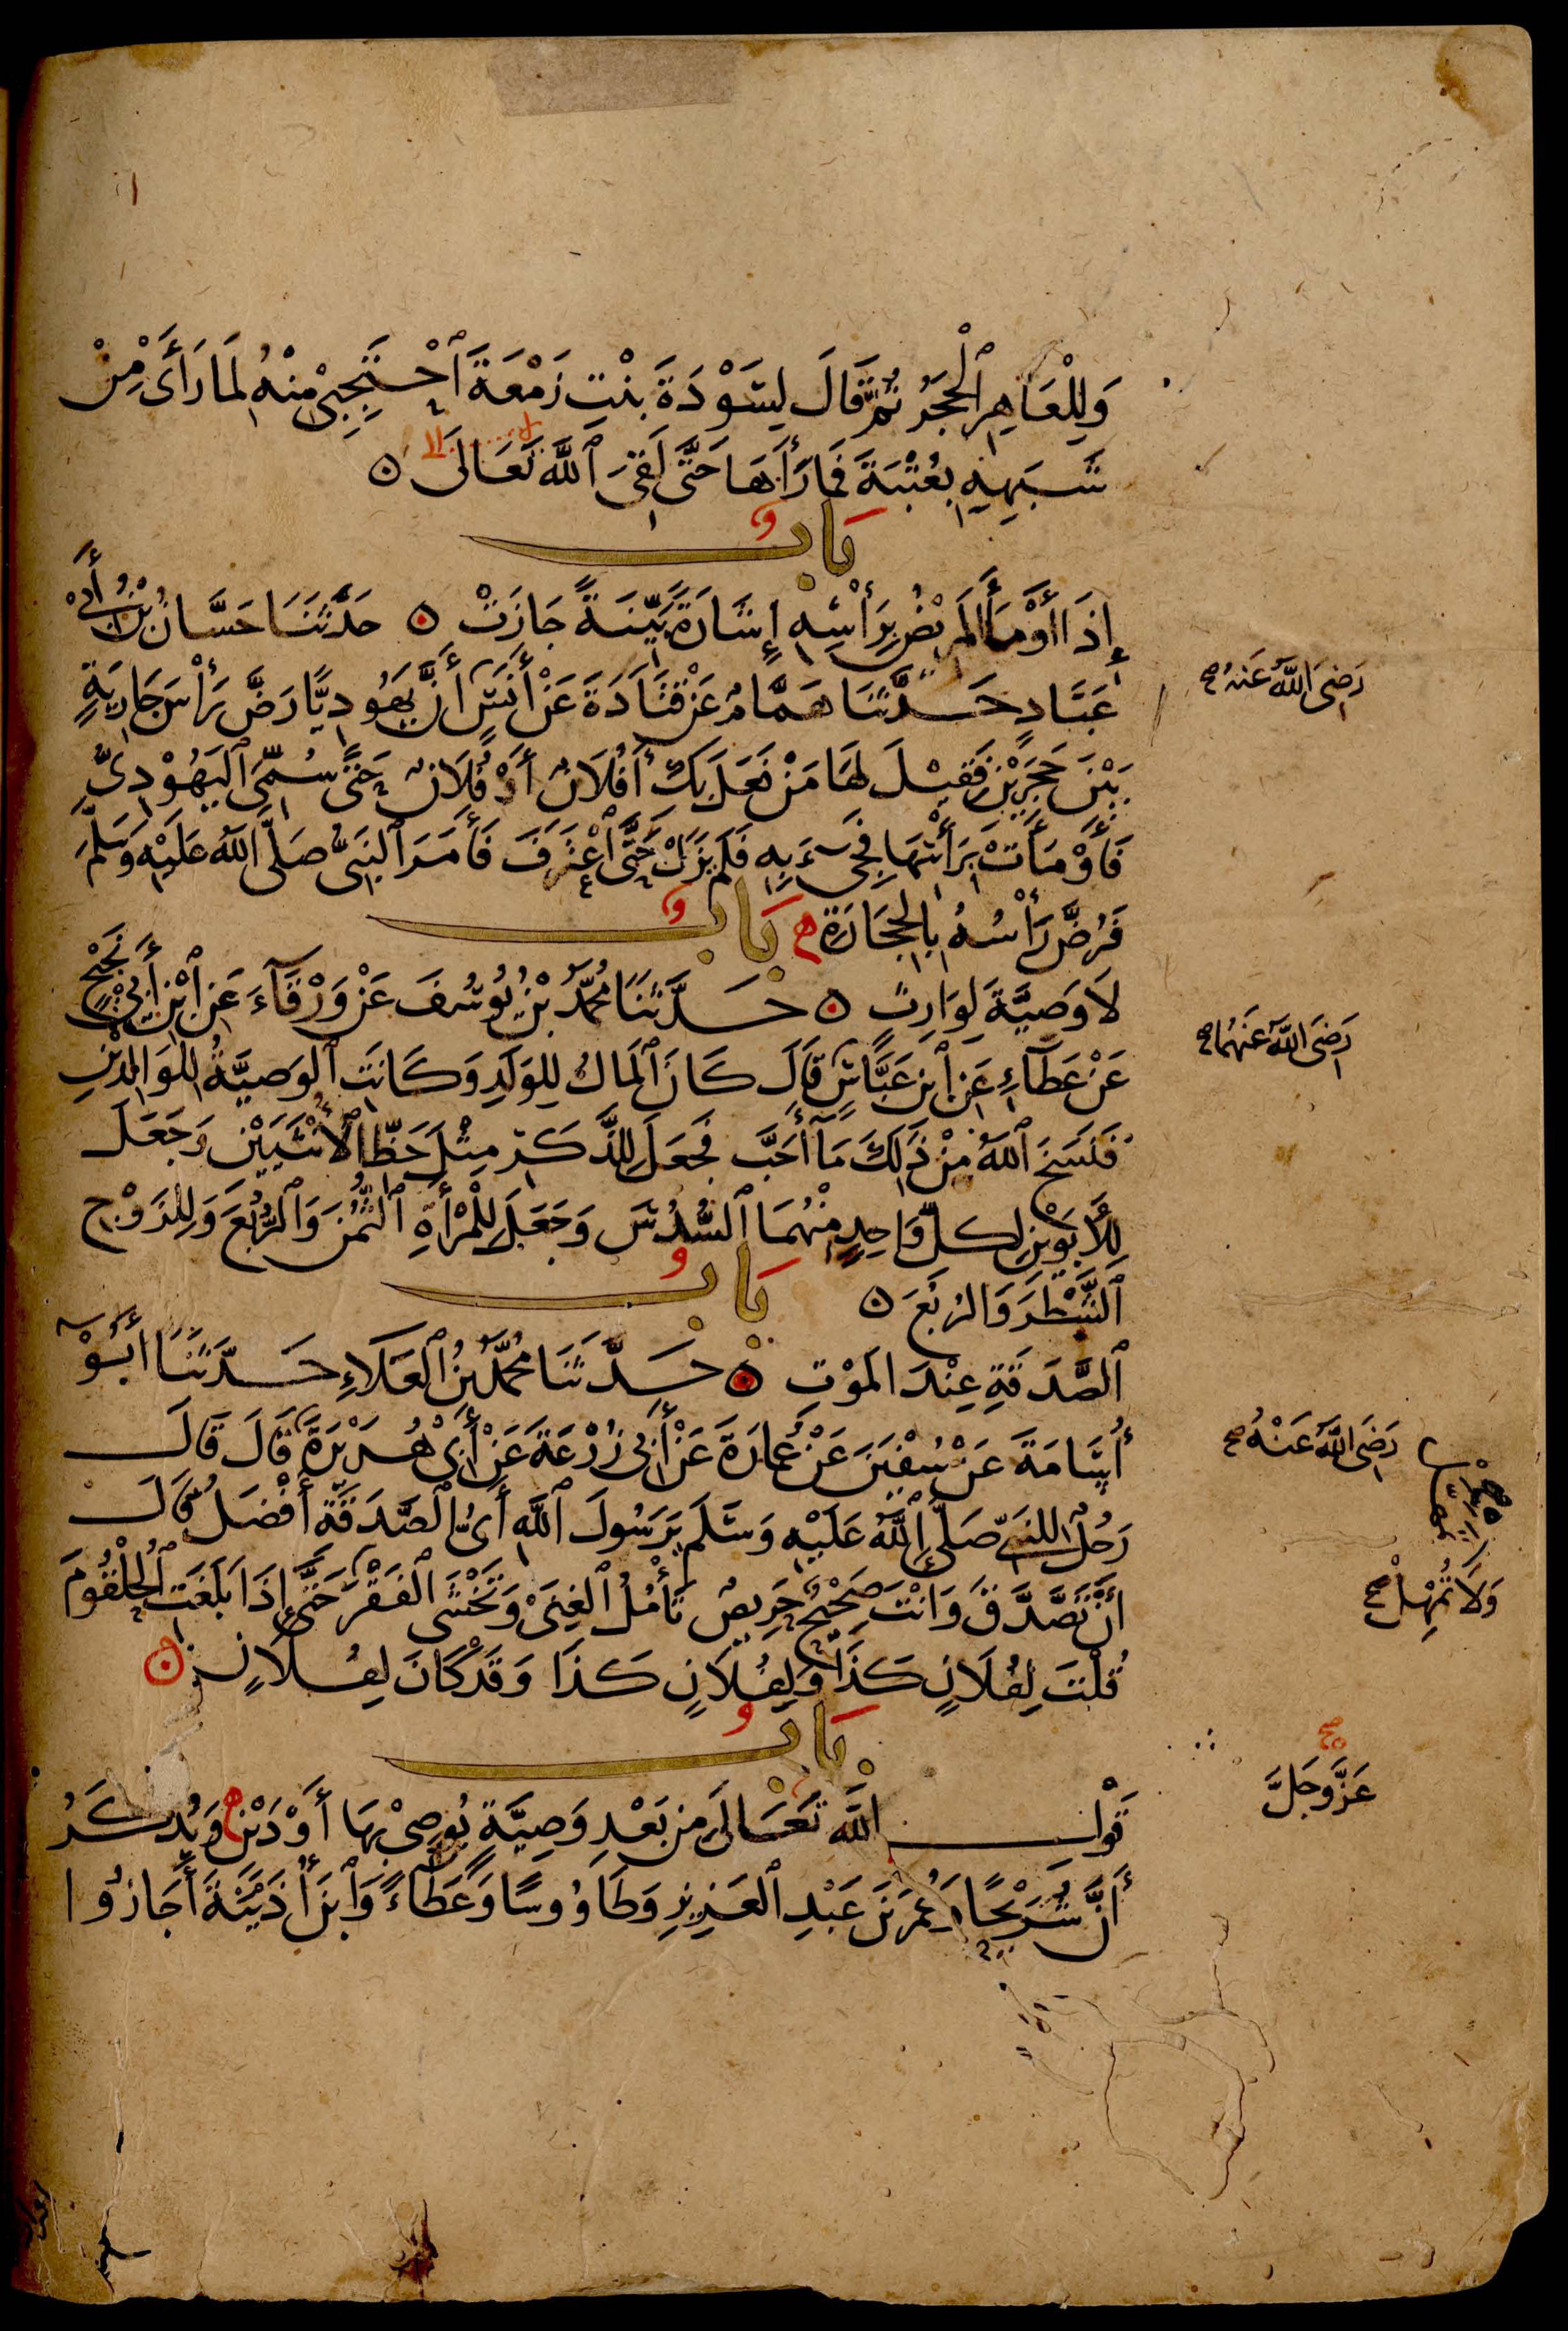 وَلِلْعَاهِرِ الْحَجَرُ ثُمَّ قَالَ لِسَوْدَةَ بِنْتِ زَمْعَةَ ٱحْتَجِبِي مِنْهُ لِمَا رَأَى مِنْ
شَبَهِهِ بِعُتْبَةَ فَمَا رَآهَا حَتَّى لَقِيَ ٱللَّهَ تَعَالَى ۝
لا إلى
بَابٌ
إِذَا أَوْمَأَ الْمَرِيضُ بِرَأْسِهِ إِشَارَةً بَيِّنَةً جَازَتْ ۝ حَدَّثَنَا حَسَّانُ بْنُ أَبِي
عَبَّادٍ حَدَّثَنَا هَمَّامٌ عَنْ قَتَادَةَ عَنْ أَنَسٍ أَنَّ يَهُودِيًّا رَضَّ رَأْسَ جَارِيَةٍ
رَضِيَ اللَّهُ عَنهُ صح
بَيْنَ حَجَرَيْنِ فَقِيلَ لَهَا مَنْ فَعَلَ بِكِ أَفُلَانٌ أَوْ فُلَانٌ حَتَّى سُمِّيَ ٱليَهُودِيُّ
فَأَوْمَأَتْ بِرَأْسِهَا فَجِيءَ بِهِ فَلَمْ يَزَلْ حَتَّى ٱعْتَرَفَ فَأَمَرَ ٱلنَّبِيُّ صَلَّى ٱللَّهُ عَلَيْهِ وَسَلَّمَ
فَرُضَّ رَأْسُهُ بِالْحِجَارَةِ ه بَابٌ
لَا وَصِيَّةَ لِوَارِثٍ ۝ حَدَّثَنَا مُحَمَّدُ بْنُ يُوسُفَ عَنْ وَرْقَآءَ عَنِ ٱبْنِ أَبِي نَجِيحٍ
عَنْ عَطَآءٍ عَنِ ٱبْنِ عَبَّاسٍ قَالَ كَانَ ٱلْمَالُ لِلوَلَدِ وَكَانَتِ ٱلوَصِيَّةُ لِلوَالِدَيْنِ
رَضِيَ اللَّهُ عَنهُما صح
فَنَسَخَ ٱللَّهُ مِنْ ذَلِكَ مَآ أَحَبَّ فَجَعَلَ لِلذَّكَرِ مِثْلَ حَظِّ ٱلْأُنْثَيَيْنِ وَجَعَلَ
لِلْأَبَوَيْنِ لِكُلِّ وَاحِدٍ مِنْهُمَا ٱلسُّدُسَ وَجَعَلَ لِلْمَرْأَةِ ٱلثُّمُنَ وَٱلرُّبُعَ وَلِلزَّوْجِ
ٱلشَّطْرَ وَالرُّبُعَ ۝ بَابُ
ٱلصَّدَقَةِ عِنْدَ الْمَوْتِ ۝ حَدَّثَنَا مُحَمَّدُ بْنُ ٱلْعَلَاءِ حَدَّثَنَا أَبُو
أُسَامَةَ عَنْ سُفْيَنَ عَنْ عُمَارَةَ عَنْ أَبِي زُرْعَةَ عَنْ أَبِي هُرَيْرَةَ قَالَ قَالَ
رَضِيَ اللَّهُ عَنْهُ صح
رَجُلٌ لِلنَّبِيِّ صَلَّى ٱللَّهُ عَلَيْهِ وَسَلَّمَ يَرَسُولَ ٱللَّهِ أَيُّ الصَّدَقَةِ أَفْضَلُ قَالَ
أَنْ تَصَّدَّقَ وَأَنْتَ صَحِيحٌ حَرِيصٌ تَأْمُلُ ٱلْغِنَى وَتَخْشَى ٱلْفَقْرَ حَتَّى إِذَا بَلَغَتِ ٱلْحُلْقُومَ
وَلَا تُمْهِلْ صح
قُلْتَ لِفُلَانٍ كَذَا وَلِفُلَانٍ كَذَا وَقَدْ كَانَ لِفُلَانٍ ۝
بَابُ
قَوْلِ اللَّهِ تَعَالَى مِنْ بَعْدِ وَصِيَّةٍ يُوصِي بِهَا أَوْ دَيْنٍ وَيُذْكَرُ
صح
عَزَّ وَجَلَّ
أَنَّ شُرَيْحًا وَعُمَرَ بْنَ عَبْدِ ٱلْعَزِيزِ وَطَاوُوسًا وَعَطَآءً وَٱبْنَ أُذَيْنَةَ أَجَازُوا